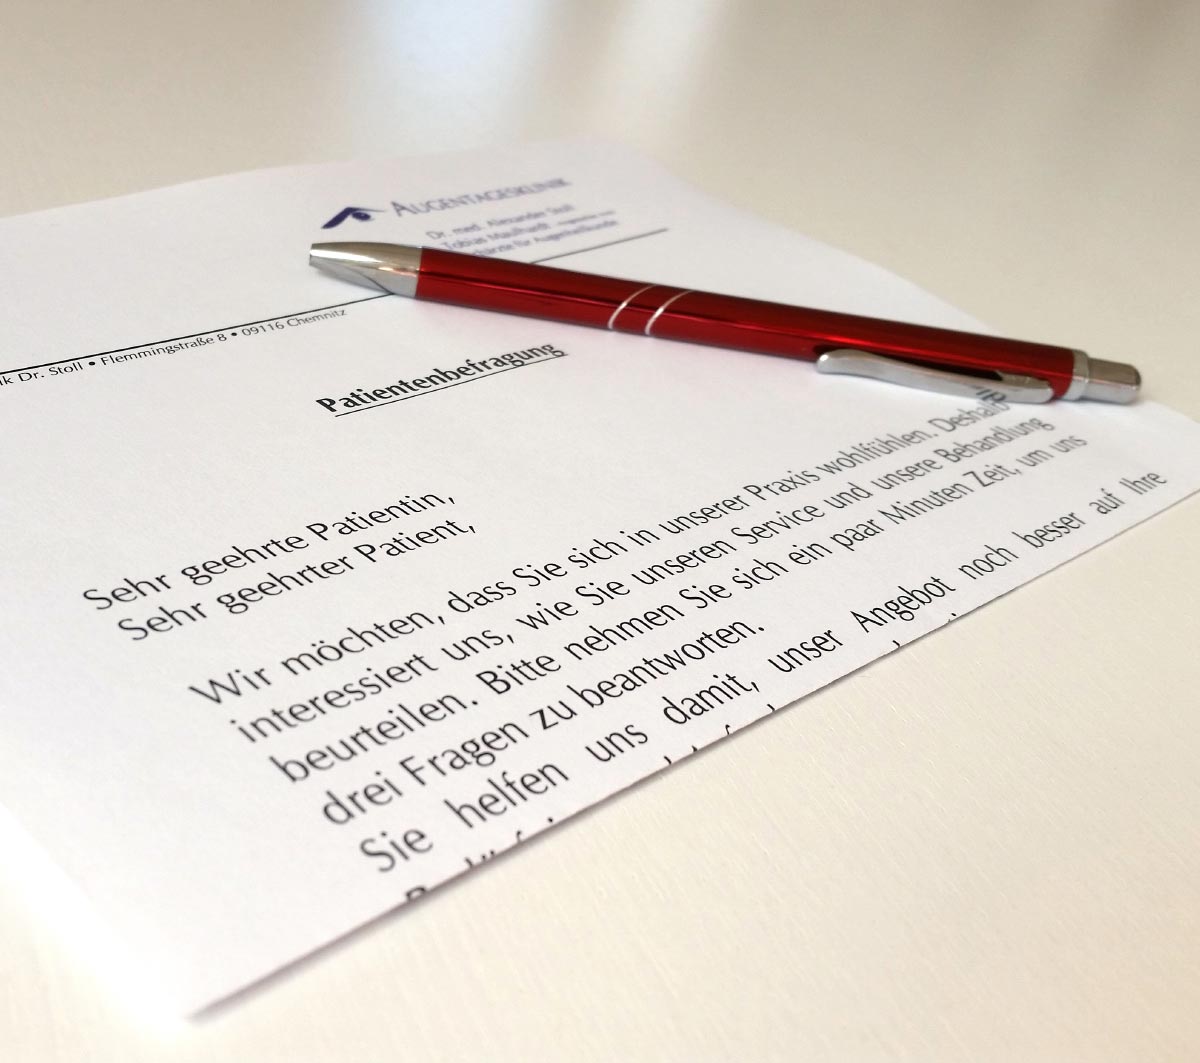 AUGENTAGESKLINIK
Dr. med. Alexander Stoll
Tobias Maulhardt
für Augenheilkunde
Dr. Stoll • Flemmingstraße 8 • 09116 Chemnitz
Patientenbefragung
Sehr geehrte Patientin,
Sehr geehrter Patient,
Wir möchten, dass Sie sich in unserer Praxis wohlfühlen. Deshalb
interessiert uns, wie Sie unseren Service und unsere Behandlung
beurteilen. Bitte nehmen Sie sich ein paar Minuten Zeit, um uns
drei Fragen zu beantworten.
Sie helfen uns damit, unser Angebot noch besser auf Ihre